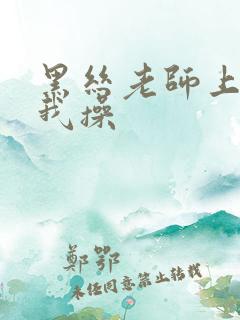 黑丝老師上
我操
鄭鄂
未经同意禁止转载